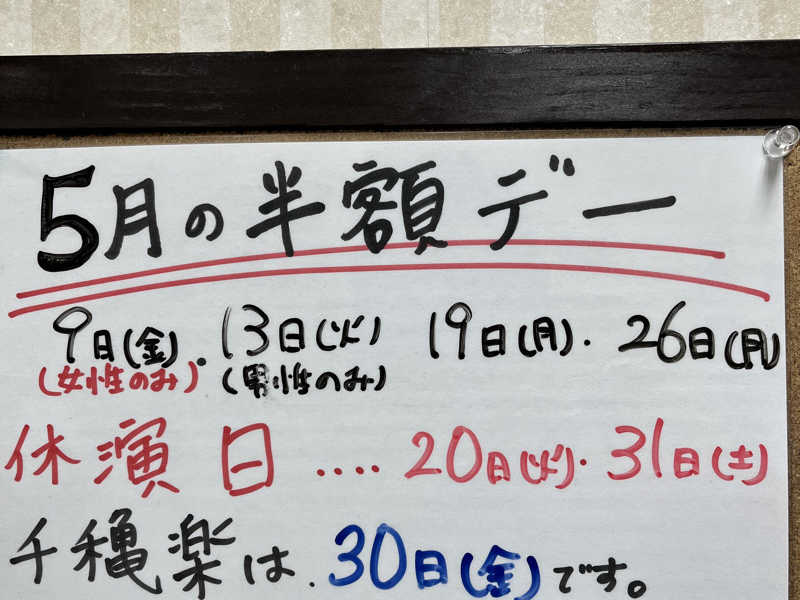 5月の半額デー
9日(金)・13日(火) 19日(月)・26日(月)
(女性のみ) (男性のみ)
休演日‥‥20日(火)・31日(土)
千穐楽は、30日(金)です。